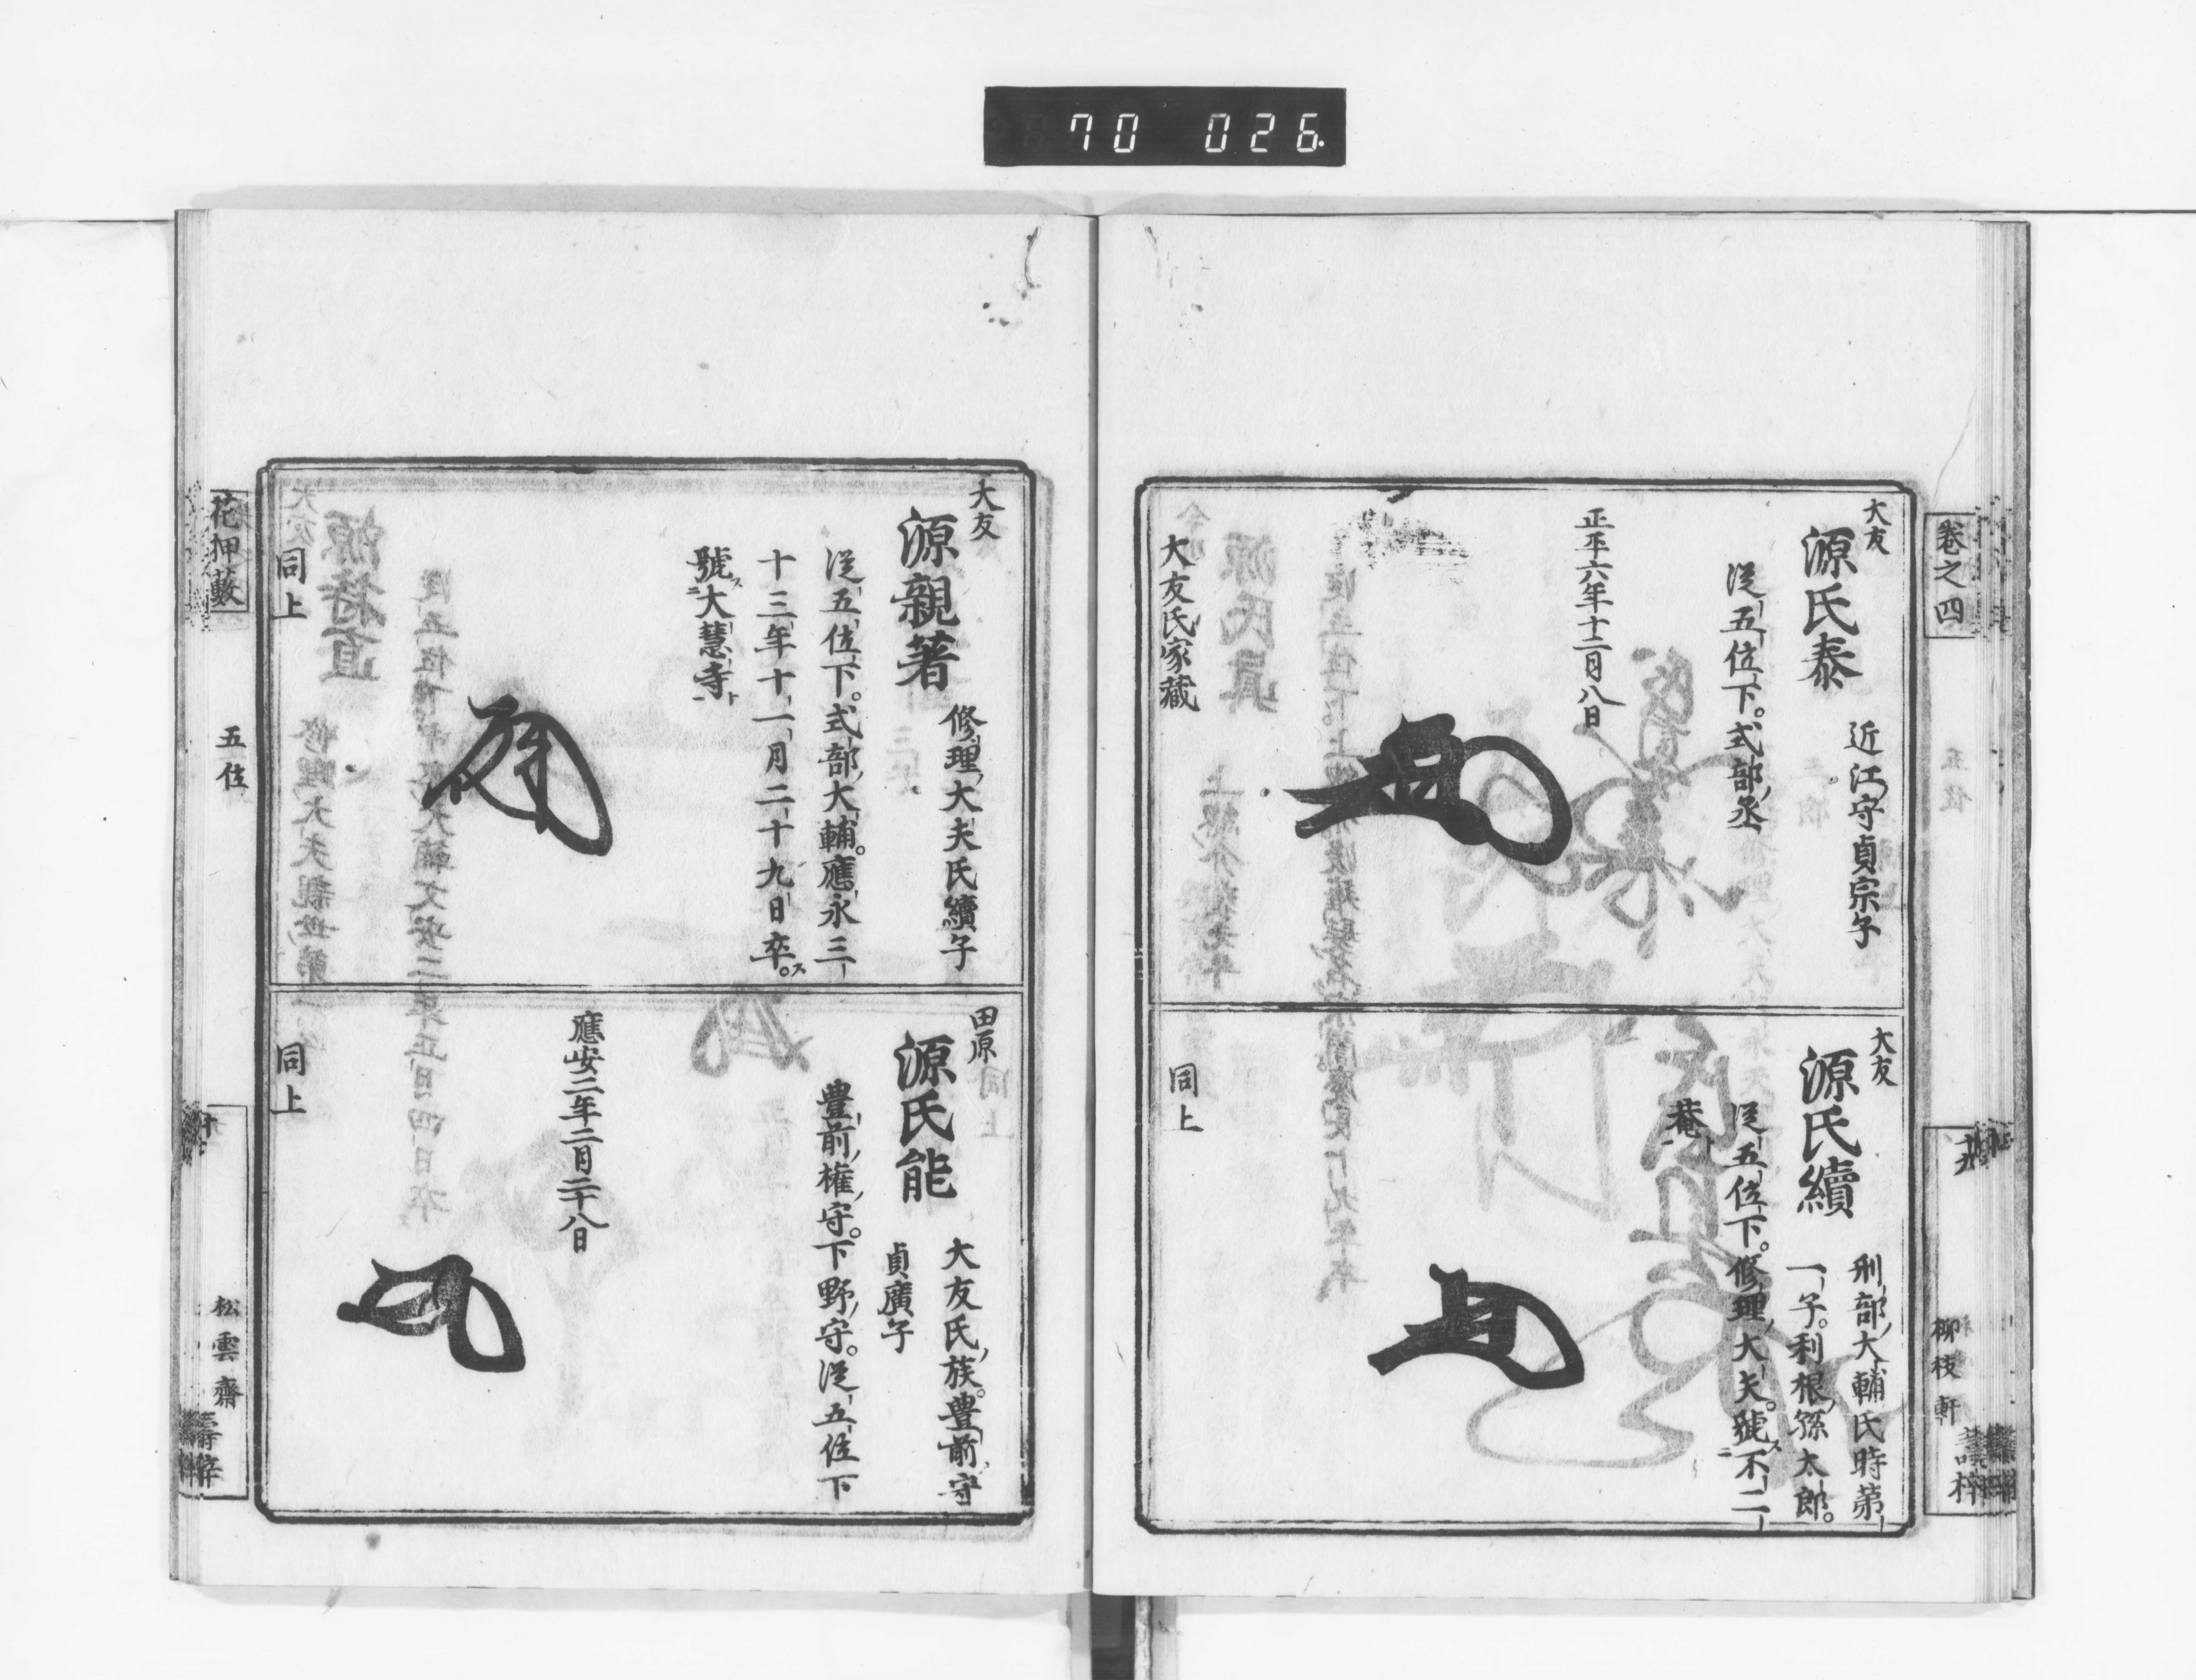 70 026
卷之四
柳枝軒
大友
源氏泰
近江守貞宗子
從五位下。式部丞
正平六年十二月八日
大友氏家藏
大友
源氏續
刑部大輔氏時第
一子。利根孫太郎。
從五位下。修理大夫。號不二
菴
同上
大友
源親著
修理大夫氏續子
從五位下。式部大輔。應永三
十三年十一月二十九日卒。
號大慧寺
同上
田原
源氏能
大友氏族。豊前守
貞廣子
豊前權守。下野守。從五位下
應安二年二月二十八日
同上
花押藪
五位
松雲齋